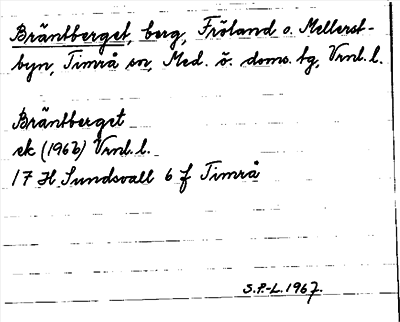 Bräntberget, berg, Fröland o. Mellerst-
byn, Timrå sn, Med. ö. doms. tg, Vrnl. l.
Bräntberget
ek (1962) Vrnl. l.
17 H Sundsvall 6 f Timrå
S.P.-L. 1967.